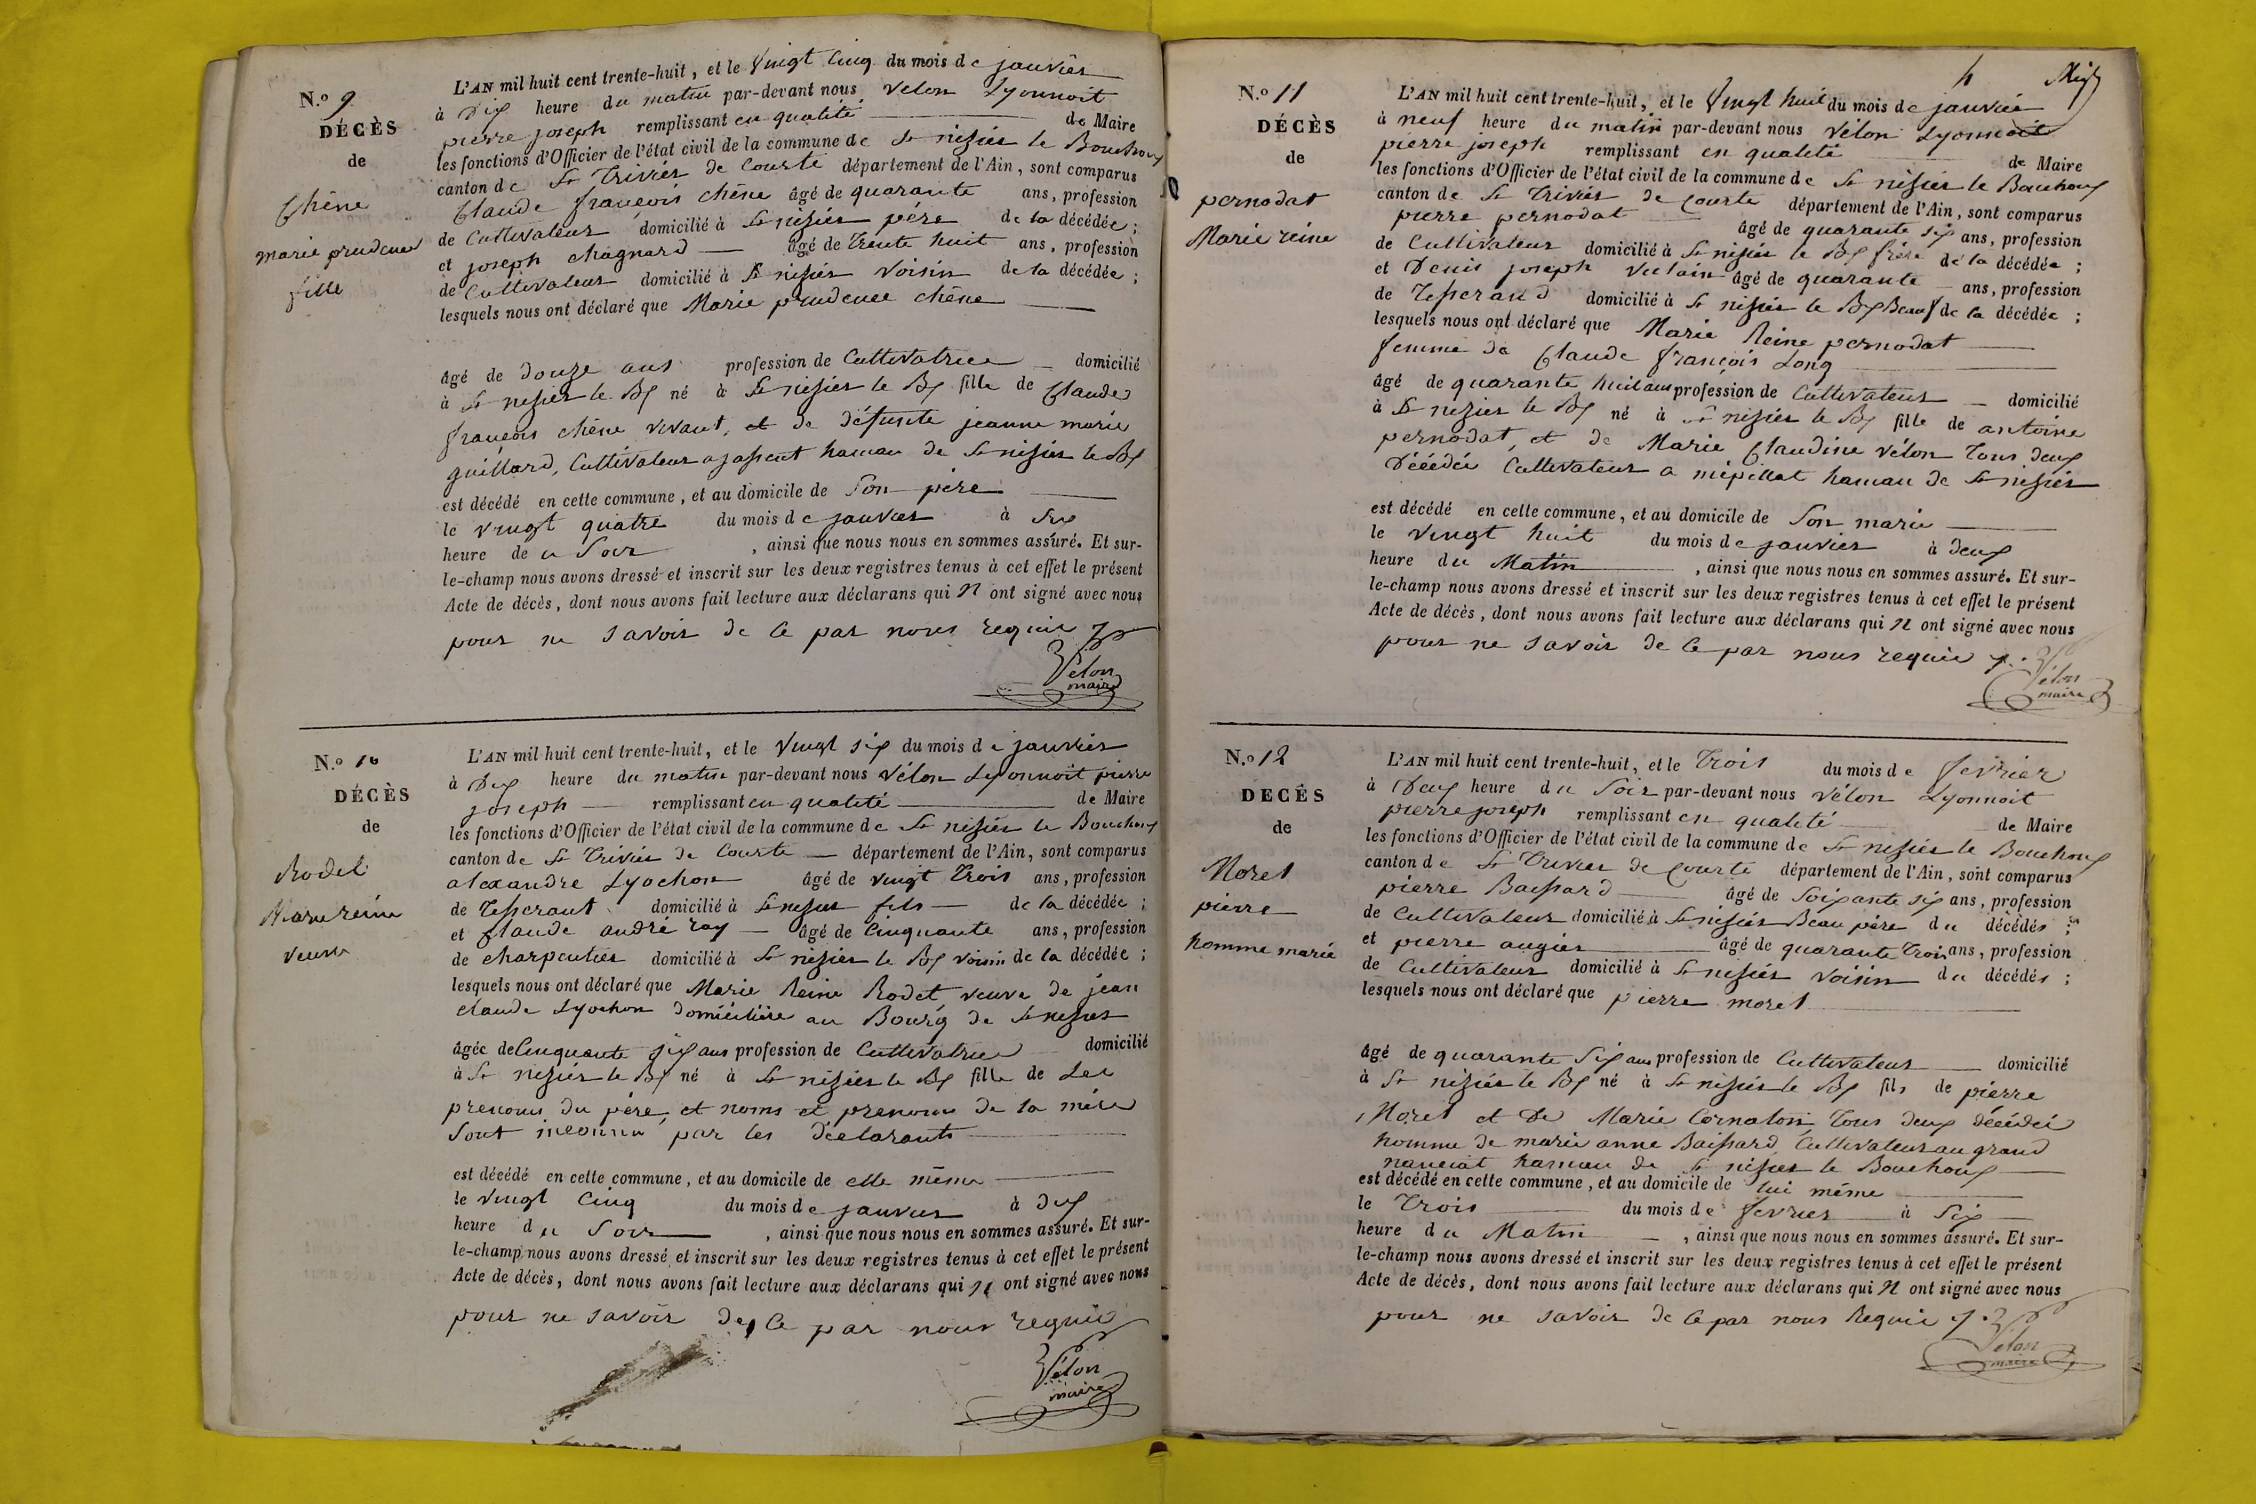 N.° 9
DÉCÈS
de
Chêne
marie prudence
fille
L'AN mil huit cent trente-huit, et le Vingt Cinq du mois de janvier
à Dix heure du matin par-devant nous Velon Lyonnoit
pierre joseph remplissant en qualité de Maire
les fonctions d'Officier de l'état civil de la commune de St nisier le Bouchoux
canton de St Trivier de Courte département de l'Ain, sont comparus
Claude françois chêne âgé de quarante ans, profession
de Cultivateur domicilié à St nisier père de la décédée;
et joseph chagnard âgé de trente huit ans, profession
de Cultivateur domicilié à St nisier Voisin de la décédée;
lesquels nous ont déclaré que Marie prudence chêne
âgé de douze ans profession de Cultivatrice domicilié
à St nisier le Bx né à St nisier le Bx fille de Claude
françois chêne vivant, et de défunte jeanne marie
guillard, Cultivateur a jassent hamau de St nisier le Bx
est décédé en cette commune, et au domicile de Son père
le vingt quatre du mois de janvier à Six
heure de u Soir, ainsi que nous nous en sommes assuré. Et sur-
le-champ nous avons dressé et inscrit sur les deux registres tenus à cet effet le présent
Acte de décès, dont nous avons fait lecture aux déclarans qui N ont signé avec nous
pour ne savoir de ce par nous requis
Vélon
maire
N.° 10
DÉCÈS
de
Rodet
Marie reine
veuve
L'AN mil huit cent trente-huit, et le Vingt six du mois de janvier
à Dix heure du matin par-devant nous Vélon Lyonnoit pierre
joseph remplissant en qualité de Maire
les fonctions d'Officier de l'état civil de la commune de St nisier le Bouchoux
canton de St Trivier de Courte département de l'Ain, sont comparus
alexandre Lyochon âgé de vingt Trois ans, profession
de Tisserant domicilié à St nisier fils de la décédée;
et Claude andré ray âgé de Cinquante ans, profession
de charpentier domicilié à St nisier le Bx voisin de la décédée;
lesquels nous ont déclaré que Marie Reine Rodet, veuve de jean
claude Lyochon domiciliée au Bourg de St nisier
âgée de Cinquante six ans profession de Cultivatrice domicilié
à St nisier le Bx né à St nisier le Bx fille de Les
prenoms du père, et noms et prenoms de la mère
Sont inconnu par les déclarants
est décédé en cette commune, et au domicile de elle même
le vingt Cinq du mois de janvier à dix
heure du Soir, ainsi que nous nous en sommes assuré. Et sur-
le-champ nous avons dressé et inscrit sur les deux registres tenus à cet effet le présent
Acte de décès, dont nous avons fait lecture aux déclarans qui N ont signé avec nous
pour ne savoir de ce par nous requis
Vélon
maire
4
N.° 11
DÉCÈS
de
pernodat
Marie reine
L'AN mil huit cent trente-huit, et le Vingt huit du mois de janvier
à neuf heure du matin par-devant nous Vélon Lyonnoit
pierre joseph remplissant en qualité de Maire
les fonctions d'Officier de l'état civil de la commune de St nisier le Bouchoux
canton de St Trivier de Courte département de l'Ain, sont comparus
pierre pernodat âgé de quarante six ans, profession
de Cultivateur domicilié à St nisier le Bx frère de la décédée;
et Denis joseph âgé de quarante ans, profession
de Tisserand domicilié à St nisier le Bx Beauf de la décédée;
lesquels nous ont déclaré que Marie Reine pernodat
femme de Claude françois Long
âgé de quarante huit ans profession de Cultivateur domicilié
à St nizier le Bx né à St nisier le Bx fille de antoine
pernodat, et de Marie Claudine vélon Tous deux
Décédés Cultivateur a mépillat hamau de St nisier
est décédé en cette commune, et au domicile de Son marie
le vingt huit du mois de janvier à deux
heure du Matin, ainsi que nous nous en sommes assuré. Et sur-
le-champ nous avons dressé et inscrit sur les deux registres tenus à cet effet le présent
Acte de décès, dont nous avons fait lecture aux déclarans qui N ont signé avec nous
pour ne savoir de ce par nous requis
Vélon
maire
N.° 12
DECÈS
de
Moret
pierre
homme marié
L'AN mil huit cent trente-huit, et le Trois du mois de fevrier
à Deux heure du Soir par-devant nous Vélon Lyonnoit
pierre joseph remplissant en qualité de Maire
les fonctions d'Officier de l'état civil de la commune de St nisier le Bouchoux
canton de St Trivier de Courte département de l'Ain, sont comparus
pierre Baissard âgé de soixante six ans, profession
de Cultivateur domicilié à St nisier Beau père du décédés;
et pierre augier âgé de quarante Trois ans, profession
de Cultivateur domicilié à St nisier Voisin du décédés;
lesquels nous ont déclaré que pierre moret
âgé de quarante Six ans profession de Cultivateur domicilié
à St nizier le Bx né à St nisier le Bx fils de pierre
Moret et De Marie Cornaton, Tous deux décédés
homme de marie anne Baissard Cultivateur au grand
nanciat hamau de St nisier le Bouchoux
est décédé en cette commune, et au domicile de lui même
le Trois du mois de fevrier à Six
heure du Matin, ainsi que nous nous en sommes assuré. Et sur-
le-champ nous avons dressé et inscrit sur les deux registres tenus à cet effet le présent
Acte de décès, dont nous avons fait lecture aux déclarans qui N ont signé avec nous
pour ne savoir de ce par nous Requis
Vélon
maire